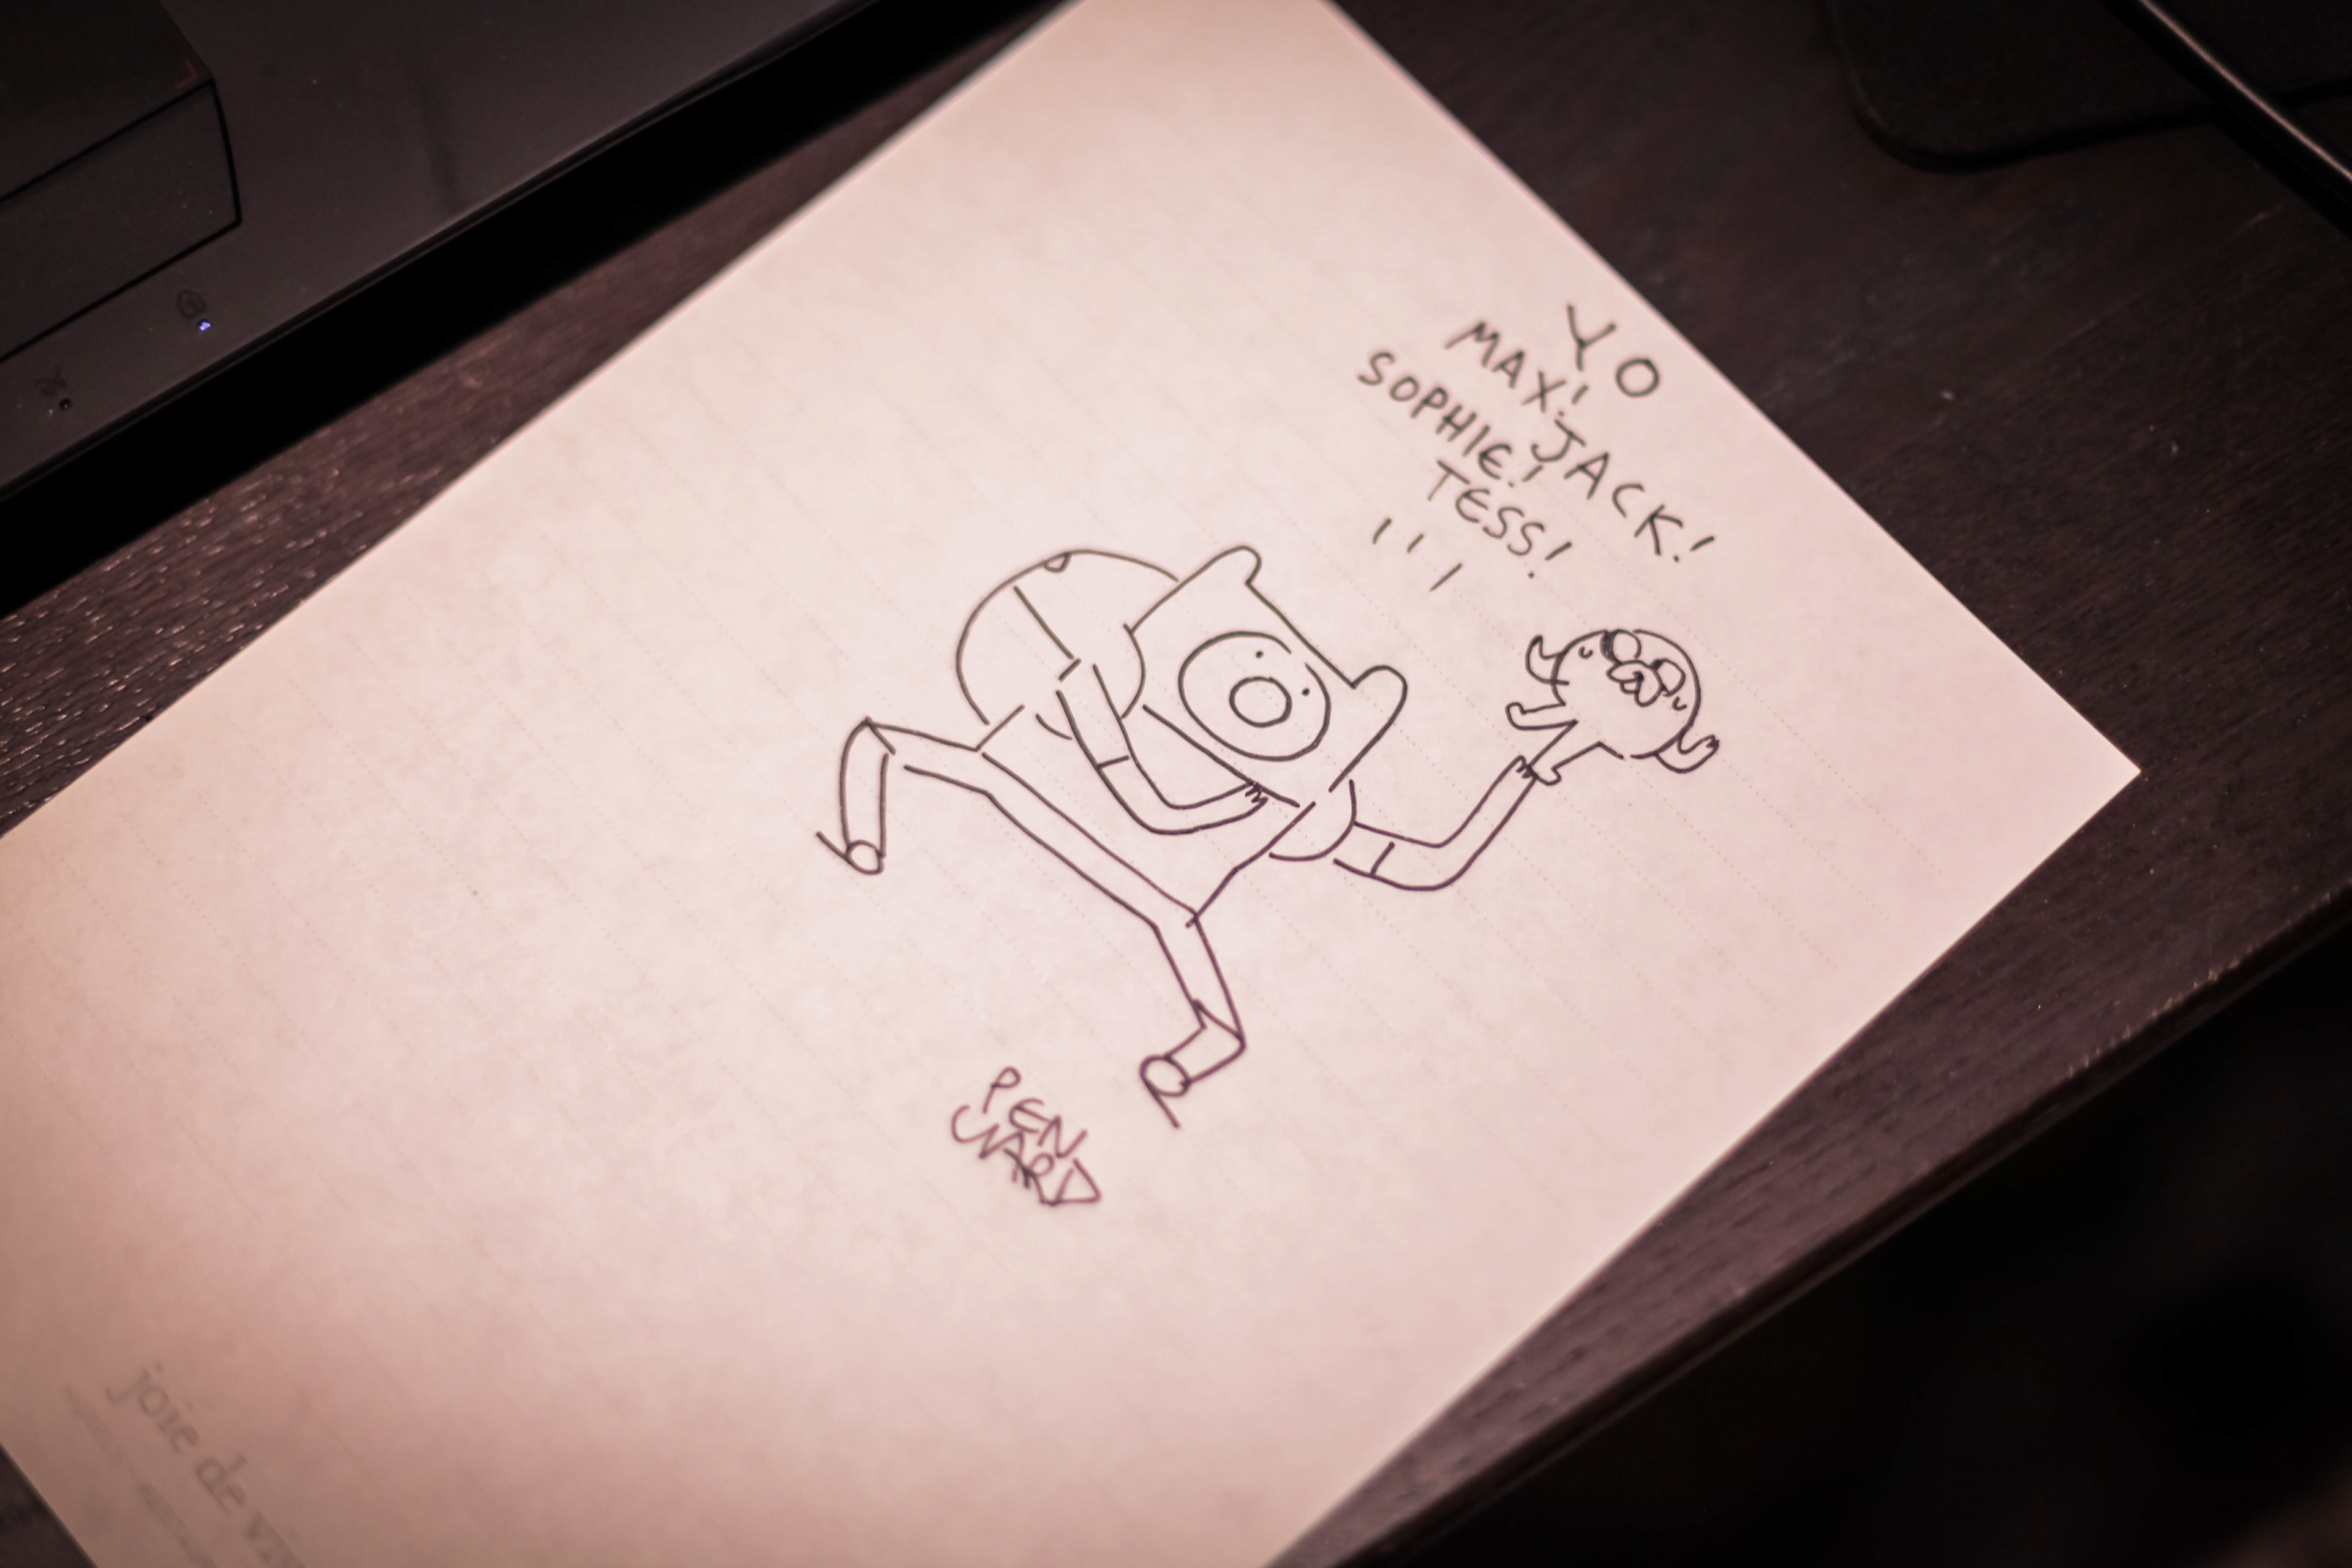 YO
MAX! JACK!
SOPHIE!
TESS!
PEN
WARD
joie de viv